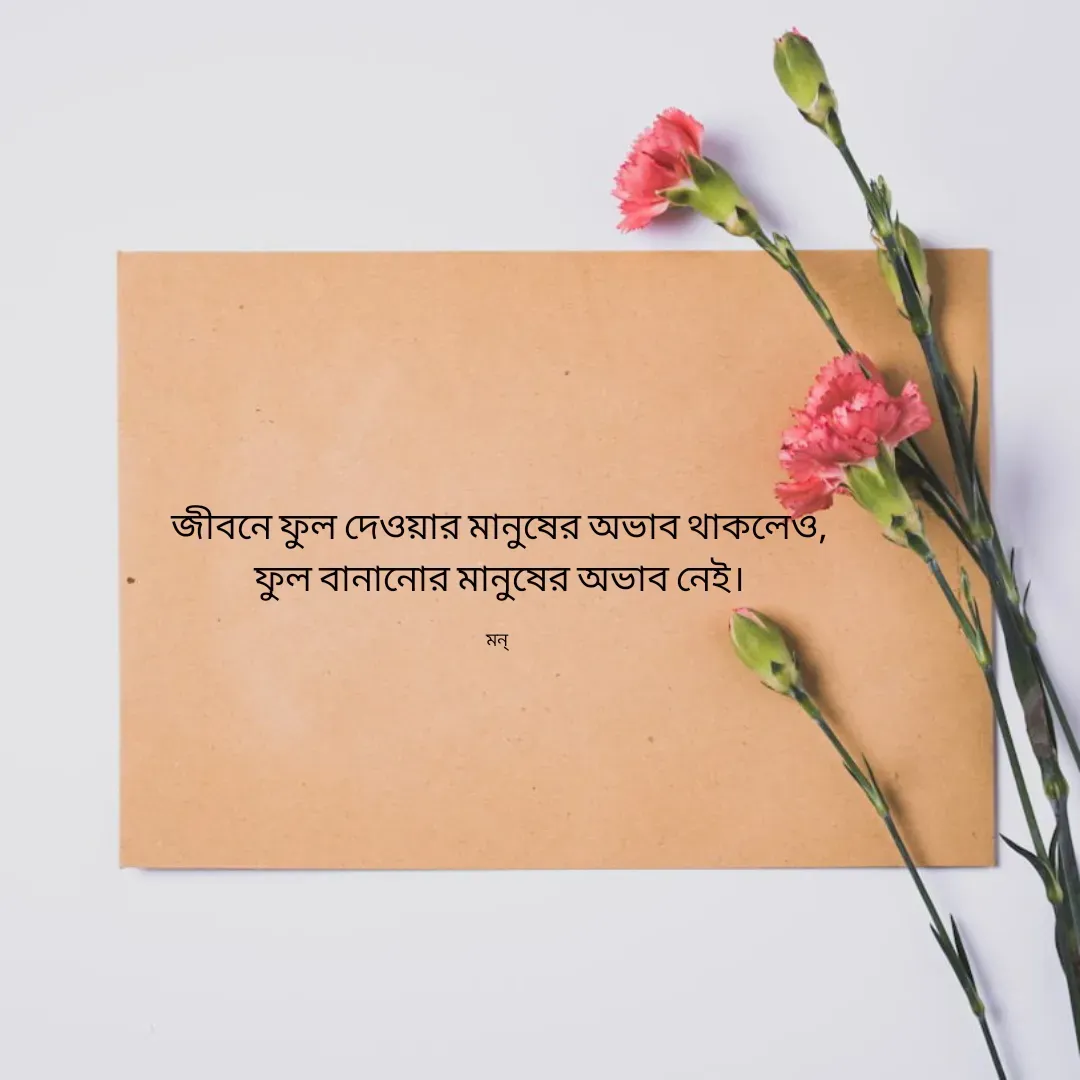 জীবনে ফুল দেওয়ার মানুষের অভাব থাকলেও,
ফুল বানানোর মানুষের অভাব নেই।
মন্